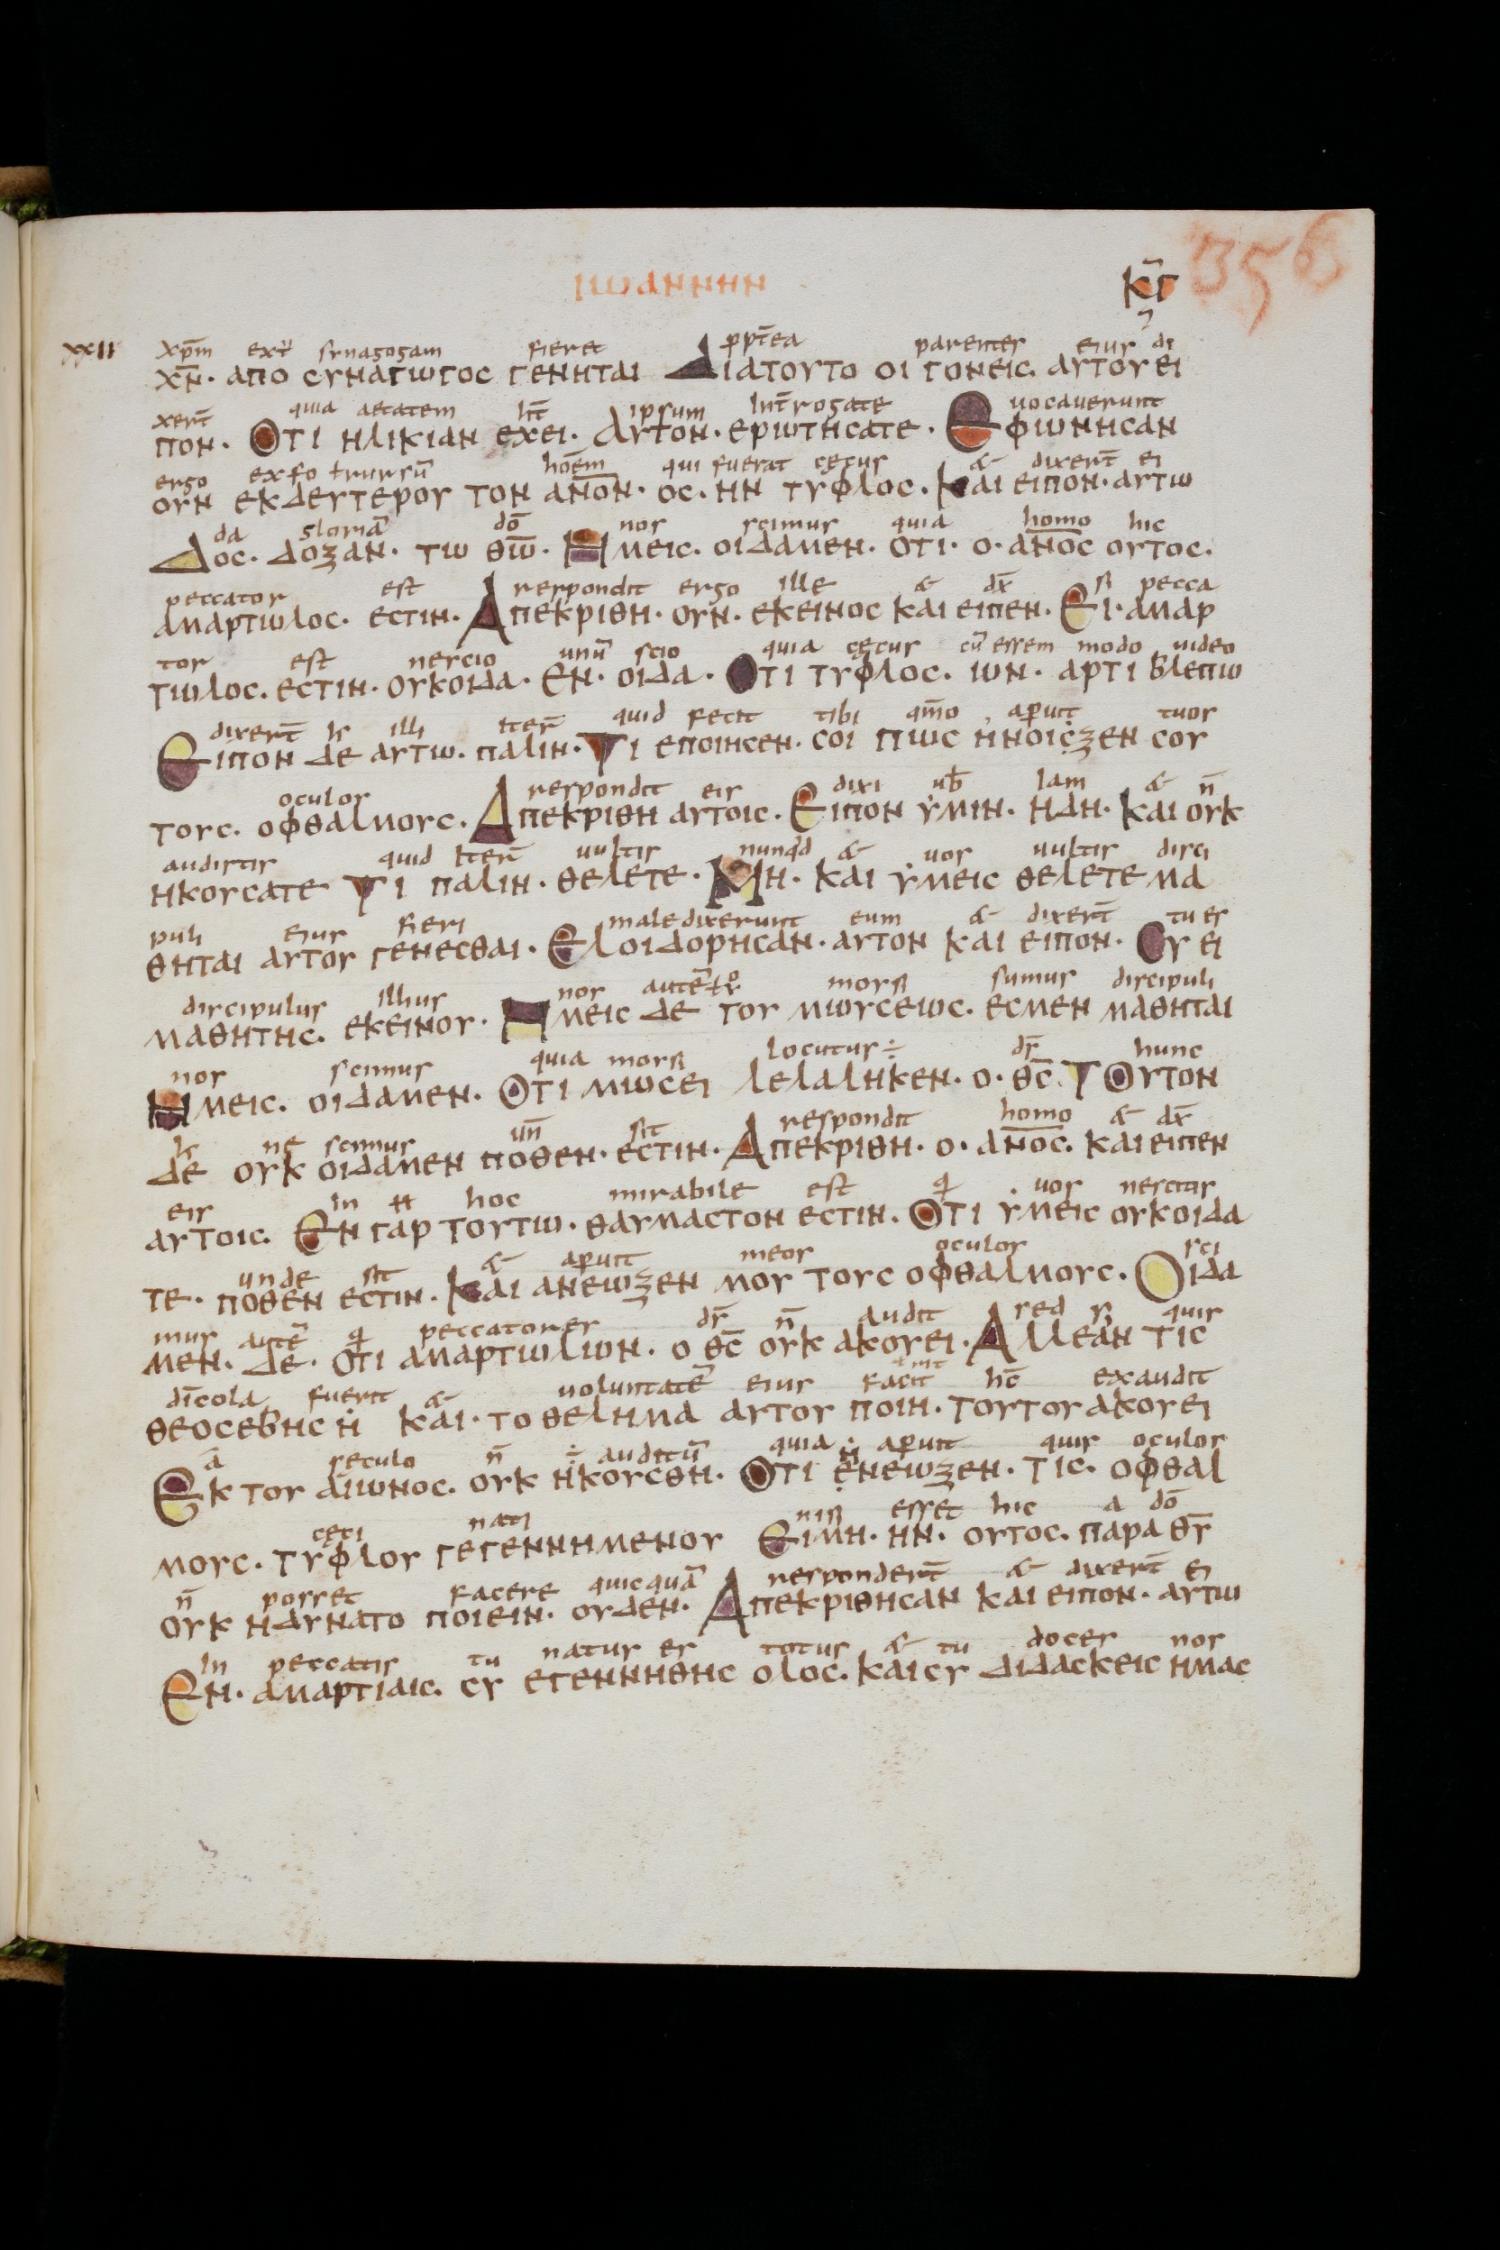 ιωαννην
κγ 356
xxII xpm ext synagogam fieret pptea parentes eius di
χν· απο συναγωγος γενηται Διατουτο οι γονεις. αυτου ει
xert quia aetatem ht ipsum Introgate uocauerunt
πον. Οτι ηλικιαν εχει. Αυτον· ερωτησατε. Εφωνησαν
ergo exfo ł rursu hoem qui fuerat cecus & dixert ei
ουν εκδευτερου τον ανον. ος. ην τυφλος. Και ειπον. αυτω
da gloria do nos scimus quia homo hic
Δος. δοξαν. τω θω. Ημεις. οιδαμεν. οτι. ο. ανος ουτος.
peccator est respondit ergo ille & dx si pecca
αμαρτωλος. εστιν. Απεκριθη. ουν. εκεινος και ειπεν. Ει. αμαρ
tor est nescio unu scio quia cecus cu essem modo uideo
τωλος. εστιν. ουκοιδα. εν. οιδα. Οτι τυφλος. ων. αρτι βλεπω
dixert illi iter quid fecit tibi qmo aperuit tuos
Ειπον δε αυτω. παλιν. Τι εποιησεν. σοι πως ηνοιξεν σου
oculos respondit eis dixi ub Iam & n
τους. οφθαλμους. Απεκριθη αυτοις. Ειπον υμιν. ηδη. και ουκ
audistis quid iter uultis nunqd & uos uultis disci
ηκουσατε Τι παλιν. θελετε. Μη. και υμεις θελετε μα
puli eius fieri maledixerunt eum & dixert tu es
θηται αυτου γενεσθαι. Ελοιδορησαν. αυτον και ειπον. Συ ει
discipulus illius nos aute mosi sumus discipuli
μαθητης. εκεινου. Ημεις δε του μωυσεως. εσμεν μαθηται
nos scimus quia mosi locutus ÷ ds hunc
Ημεις. οιδαμεν. Οτι μωσει λελαληκεν. ο. θς. Τουτον
ne scimus un sit respondit homo & dx
δε ουκ οιδαμεν ποθεν. εστιν. Απεκριθη. ο. ανος. και ειπεν
eis In hoc mirabile est qi uos nescitis
αυτοις. Εν γαρ τουτω. θαυμαστον εστιν. Οτι υμεις ουκοιδα
unde sit & aperuit meos oculos sci
τε. ποθεν εστιν. Και ανεωξεν μου τους οφθαλμους. Οιδα
mus aute qi peccatores ds n audit sed si quis
μεν. δε. οτι αμαρτωλων. ο θς ουκ ακουει. Αλλεαν τις
dicola fuerit & uoluntate eius facit hc exaudit
θεοσεβης η και. το θελημα αυτου ποιη. τουτου ακουει
a seculo n ÷ auditu quia aperuit quis oculos
Εκ του αιωνος. ουκ ηκουσθη. Οτι ενεωξεν. τις. οφθαλ
ceci nati nisi esset hic a do
μους. τυφλου γεγεννημενου Ειμη. ην. ουτος. παρα θυ
n posset facere quicqua respondert & dixert ei
ουκ ηδυνατο ποιειν. ουδεν. Απεκριθησαν και ειπον. αυτω
In peccatis tu natus es totus & tu doces nos
Εν. αμαρτιαις. συ εγεννηθης ολος. και συ διδασκεις ημας